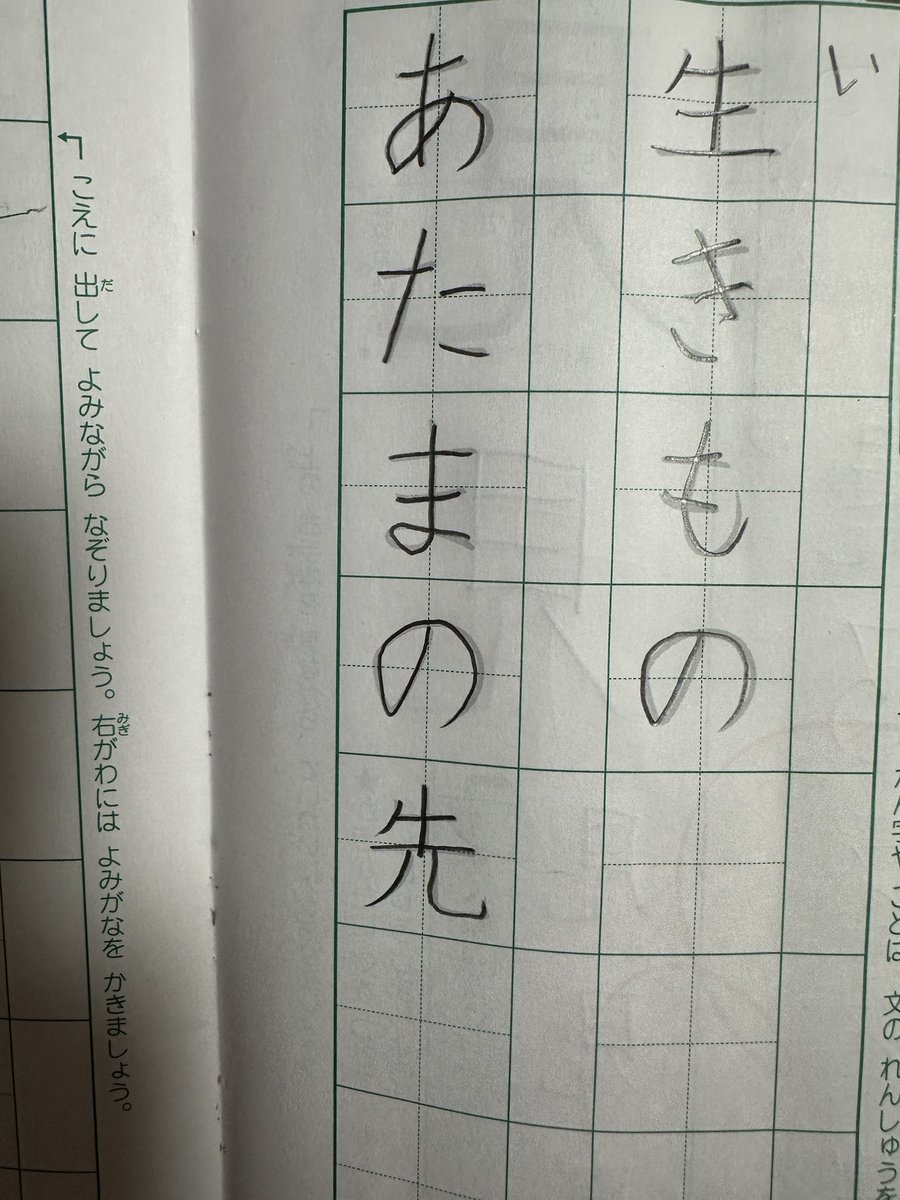 い
生きもの
あたまの先
こえに 出して よみながら なぞりましょう。右がわには よみがなを かきましょう。
だ
みぎ
文の れんしゅうを